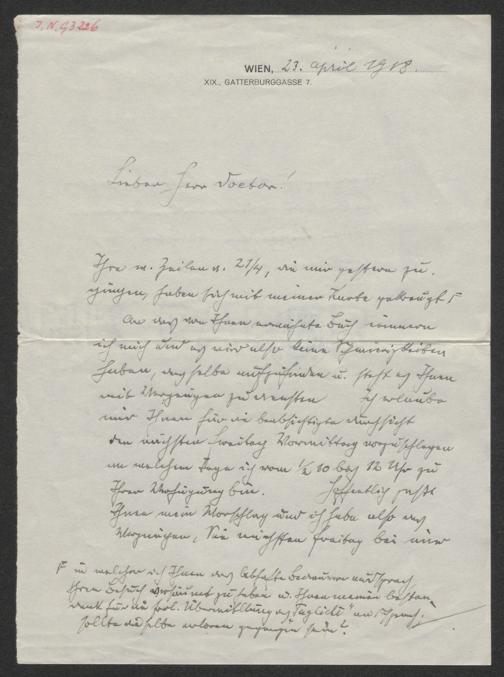 J. N. 93226
WIEN, 23. April 1918.
XIX., GATTERBURGGASSE 7.
Lieber Herr Doctor!
Ihre w. Zeilen v. 21/4, die mir gestern zu-
gingen, haben sich mit meiner Karte gekreuzt F
An das von Ihnen erwähnte Buch erinnere
ich mich und es wird also keine Schwierigkeiten
haben, dasselbe aufzufinden u. steht es Ihnen
mit Vergnügen zu Diensten Ich erlaube
mir Ihnen für die beabsichtigte Durchsicht
den nächsten Freitag Vormittag vorzuschlagen
an welchem Tage ich von 1/2 10 bis 12 Uhr zu
Ihrer Verfügung bin. Hoffentlich paßt
Ihnen mein Vorschlag und ich habe also das
Vergnügen, Sie nächsten Freitag bei mir
F in welcher ich Ihnen das lebhafte Bedauern aussprach,
Ihren Besuch versäumt zu haben u. Ihnen meinen besten
Dank für die frdl. Übermittlung des "Täglich" aussprach.
Sollte dieselbe verloren gegangen sein?